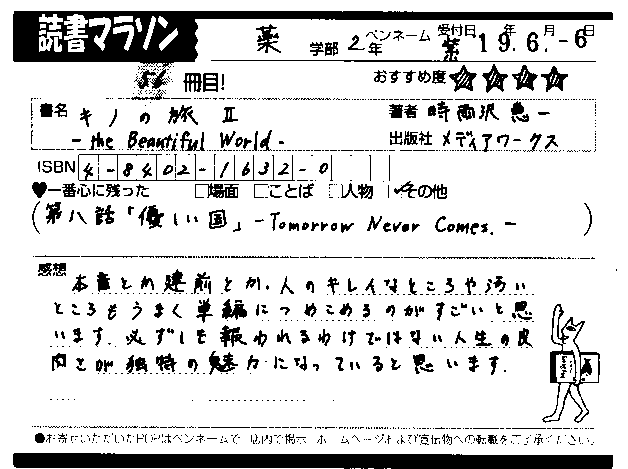 読書マラソン 薬 学部 2年 ペンネーム 薬 受付日 19年 6月 -6日
56冊目! おすすめ度 ★★★★
書名 キノの旅 II 著者 時雨沢 恵一
- the Beautiful World - 出版社 メディアワークス
ISBN 4-8402-1632-0
♥一番心に残った □場面 □ことば □人物 ✓その他
(第八話「優しい国」-Tomorrow Never Comes.-)
感想 本音とか建前とか、人のキレイなところや汚い
ところもうまく単編につめこめるのがすごいと思
います。必ずしも報われるわけではない人生の
とか独特の魅力になっていると思います。
●お寄せいただいたPOPはペンネームで、店内で掲示、ホームページおよび宣伝物への転載をご了承ください。